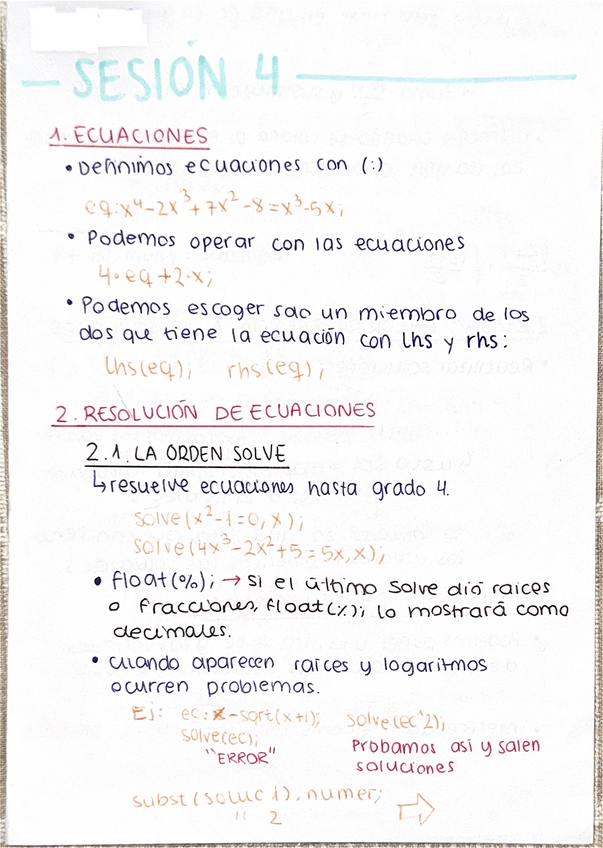 SESIÓN 4
1. ECUACIONES
• Definimos ecuaciones con (:)
eq: x⁴-2x³+7x²-8=x³-5x;
• Podemos operar con las ecuaciones
4·eq+2·x;
• Podemos escoger solo un miembro de los
dos que tiene la ecuación con lhs y rhs:
lhs(eq); rhs(eq);
2. RESOLUCIÓN DE ECUACIONES
2.1. LA ORDEN SOLVE
↳ resuelve ecuaciones hasta grado 4.
solve(x²-1=0, x);
solve(4x³-2x²+5=5x, x);
• float(%); → si el último solve dió raíces
o fracciones, float(%); lo mostrará como
decimales.
• cuando aparecen raíces y logaritmos
ocurren problemas.
Ej: ec: x-sqrt(x+1); solve(ec^2);
solve(ec); Probamos así y salen
"ERROR" soluciones
subst(soluc 1), numer;
" 2